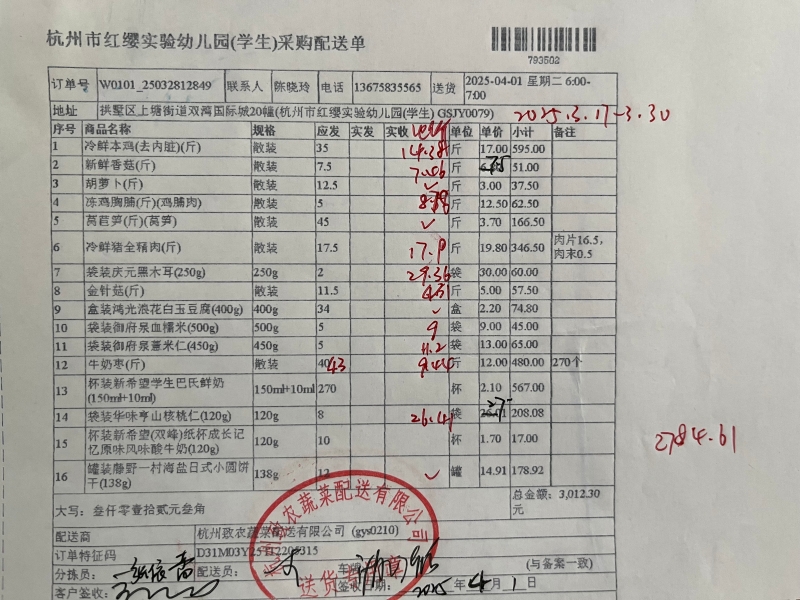 杭州市红缨实验幼儿园(学生)采购配送单
793502
订单号 W0101_25032812849 联系人 陈晓玲 电话 13675835565 送货 2025-04-01 星期二 6:00-7:00
地址 拱墅区上塘街道双湾国际城20幢(杭州市红缨实验幼儿园(学生) GSJY0079) 2025.3.17-3.30
序号 商品名称 规格 应发 实发 实收 单位 单价 小计 备注
1 冷鲜本鸡(去内脏)(斤) 散装 35 14.38 斤 17.00 595.00
2 新鲜香菇(斤) 散装 7.5 7.06 斤 51.00
3 胡萝卜(斤) 散装 12.5 ✓ 斤 3.00 37.50
4 冻鸡胸脯(斤)(鸡脯肉) 散装 5 斤 12.50 62.50
5 莴苣笋(斤)(莴笋) 散装 45 ✓ 斤 3.70 166.50
6 冷鲜猪全精肉(斤) 散装 17.5 17.9 斤 19.80 346.50 肉片16.5,肉末0.5
7 袋装庆元黑木耳(250g) 250g 2 29.36 袋 30.00 60.00
8 金针菇(斤) 散装 11.5 斤 5.00 57.50
9 盒装鸿光浪花白玉豆腐(400g) 400g 34 ✓ 盒 2.20 74.80
10 袋装御府泉血糯米(500g) 500g 5 9 袋 9.00 45.00
11 袋装御府泉薏米仁(450g) 450g 5 11.2 袋 13.00 65.00
12 牛奶枣(斤) 散装 40 43 9.44 斤 12.00 480.00 270个
13 杯装新希望学生巴氏鲜奶(150ml+10ml) 150ml+10ml 270 杯 2.10 567.00
14 袋装华味亨山核桃仁(120g) 120g 8 26.41 袋 26.01 27 208.08
15 杯装新希望(双峰)纸杯成长记忆原味风味酸牛奶(120g) 120g 10 杯 1.70 17.00
2784.61
16 罐装藤野一村海盐日式小圆饼干(138g) 138g 12 ✓ 罐 14.91 178.92
大写：叁仟零壹拾贰元叁角 总金额：3,012.30元
配送商 杭州致农蔬菜配送有限公司 (gys0210)
订单特征码
农蔬菜配送有限公司
送货专用章
分拣员： 配送员： (与备案一致)
客户签收： 签收日期： 2025 年 4 月 1 日